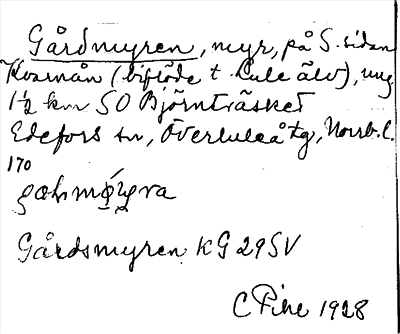 Gårdmyren, myr, på S. sidan
Kvarnån (biflöde t. Lule älv), ung.
1½ km SO Björnträsket
Edefors sn, Överluleå tg, Norrb. l.
170
Gårdsmyren KG 29 SV
C Pihl 1928